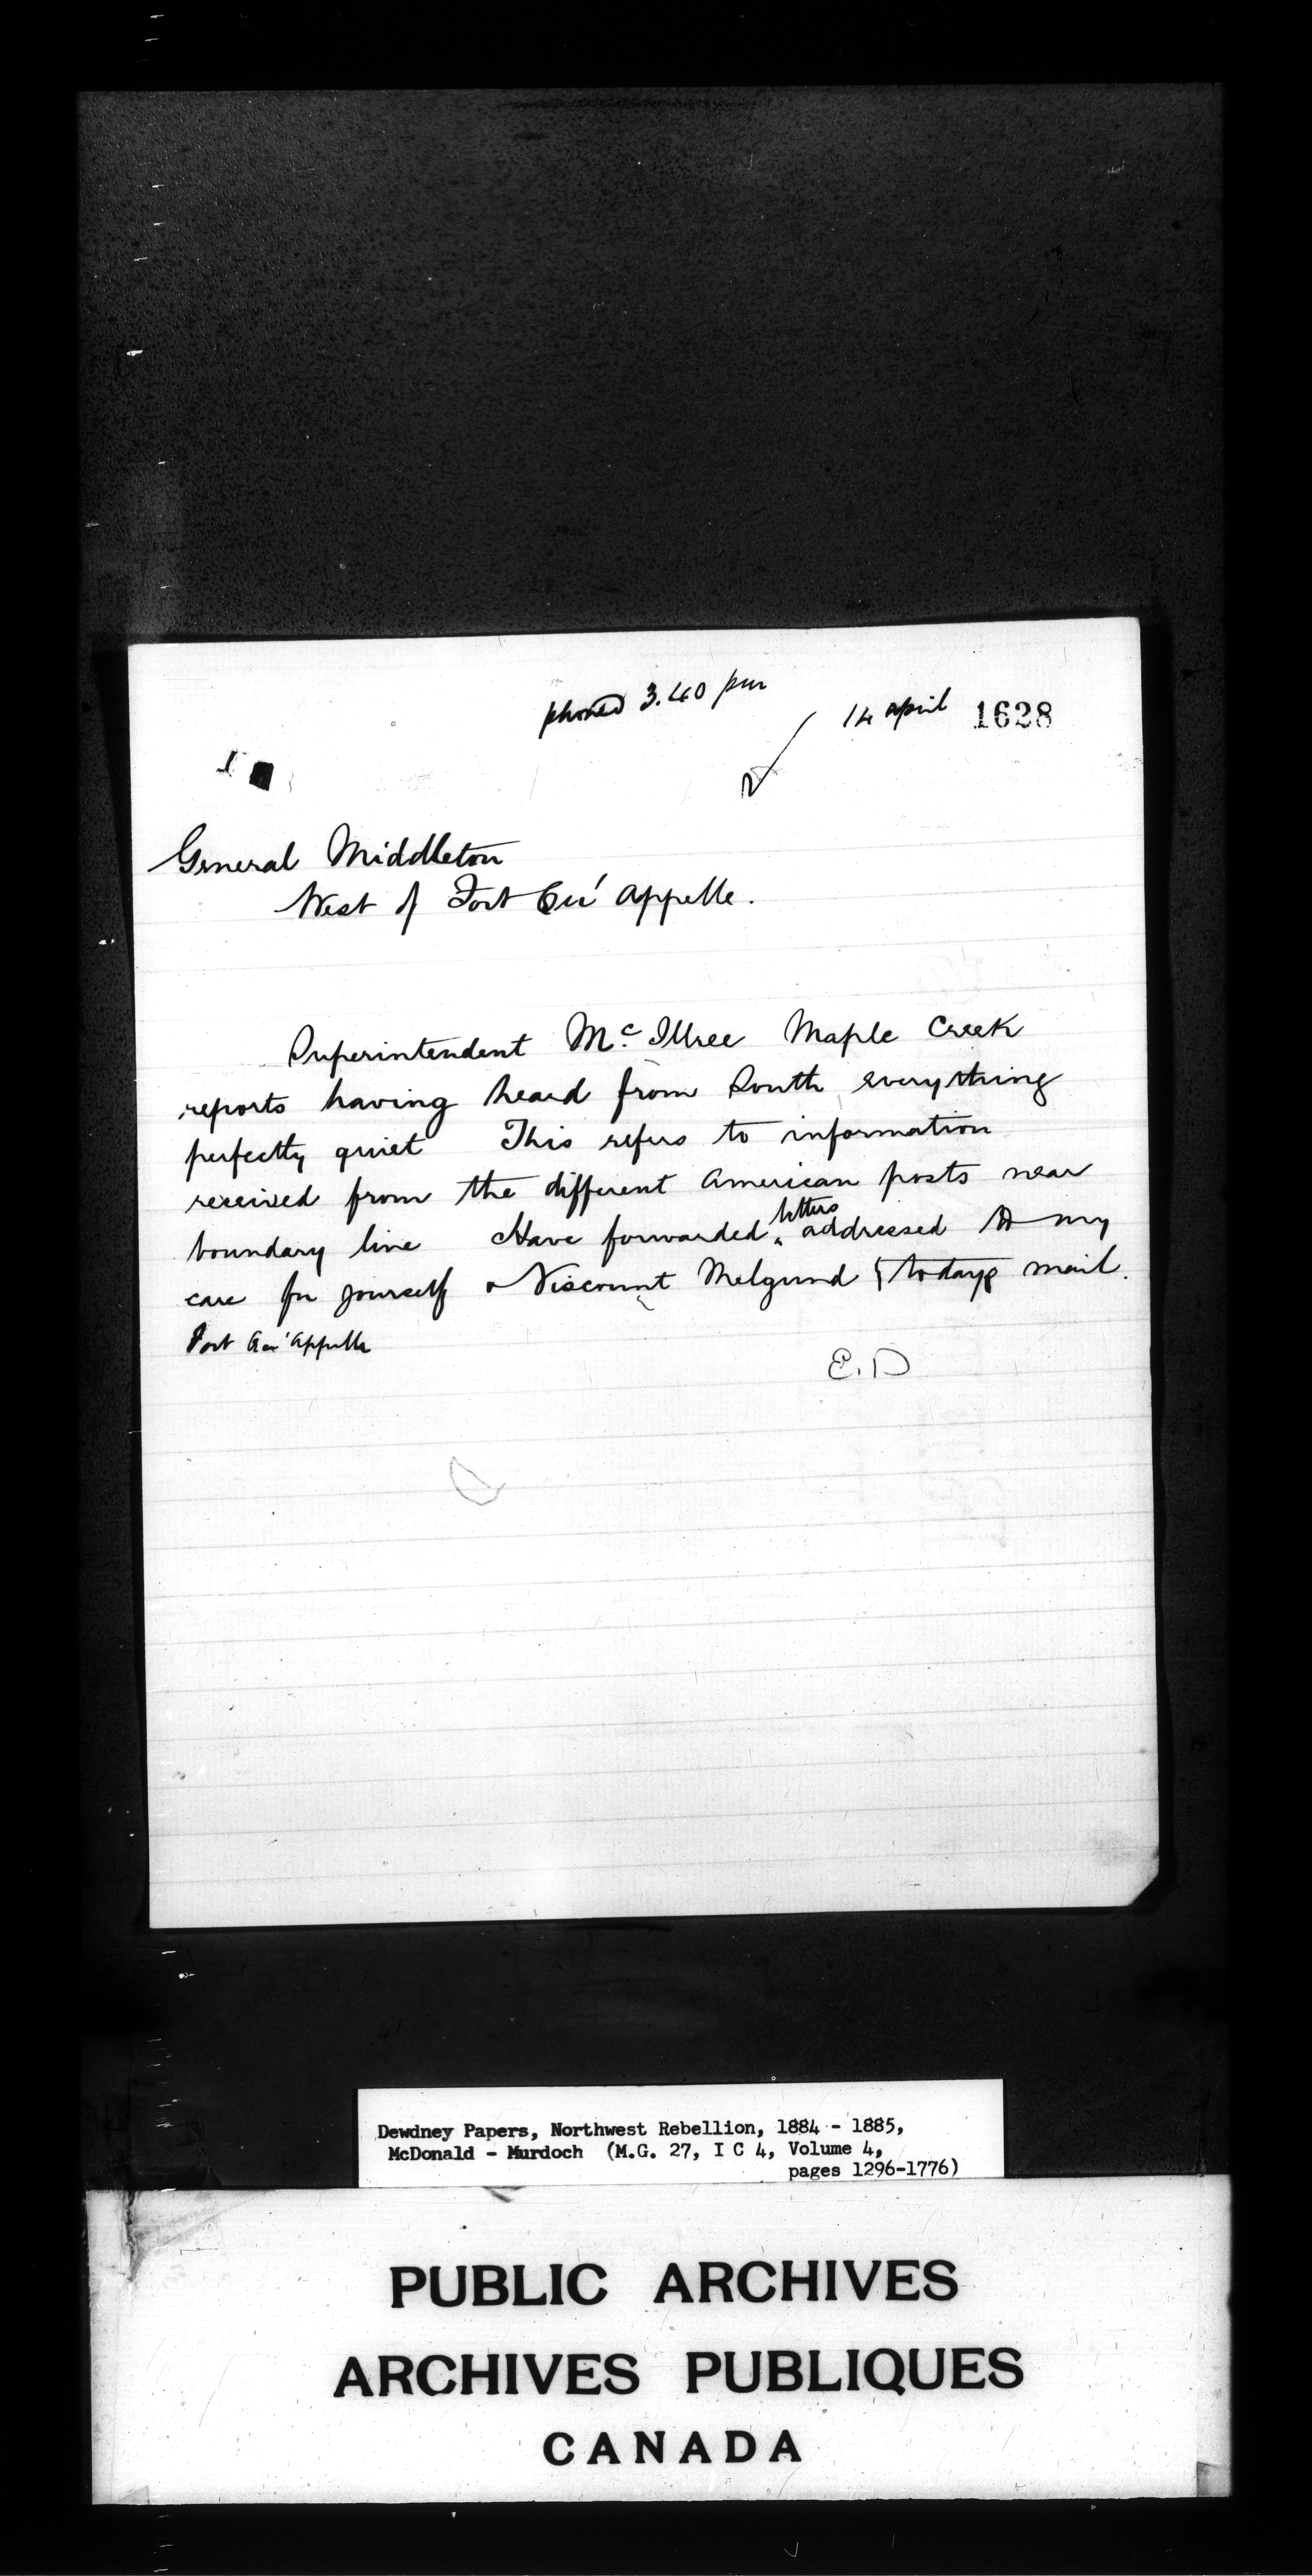 phoned 3.40 pm
14 april 1628
General Middleton
West of Fort Qu' appelle.
Superintendent Mc. Illree Maple Creek
reports having heard from South everything
perfectly quiet This refers to information
received from the different American posts near
boundary line Have forwarded letters addressed to my
care for yourself & Viscount Melgund today's mail.
Fort Qu' Appelle
E. D
Dewdney Papers, Northwest Rebellion, 1884 - 1885,
McDonald - Murdoch (M.G. 27, I C 4, Volume 4,
pages 1296-1776)
PUBLIC ARCHIVES
ARCHIVES PUBLIQUES
CANADA